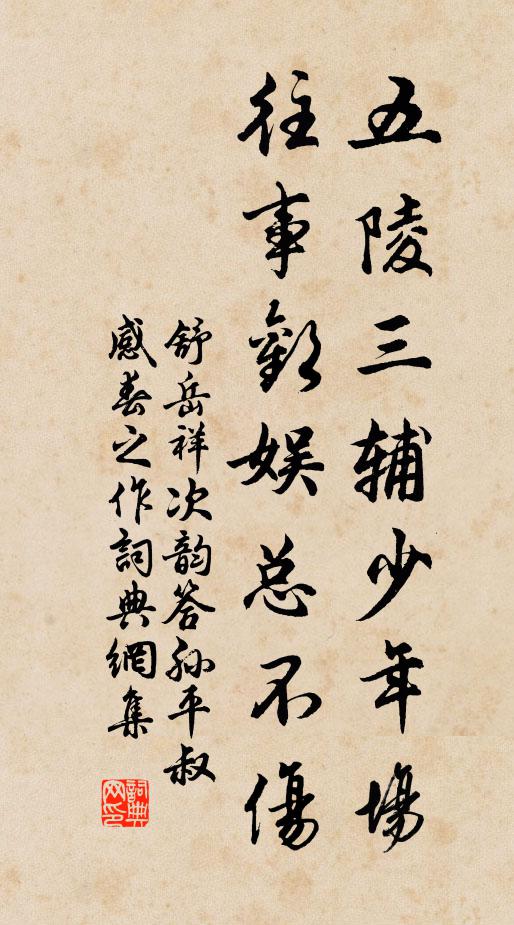 五陵三辅少年場
往事歡娱总不傷
舒岳祥次韵答孙平叔
感春之作詞典網集
詞典网印